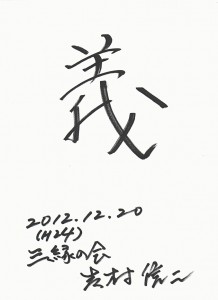 義
2012.12.20
(H24)
三縁の会
吉村